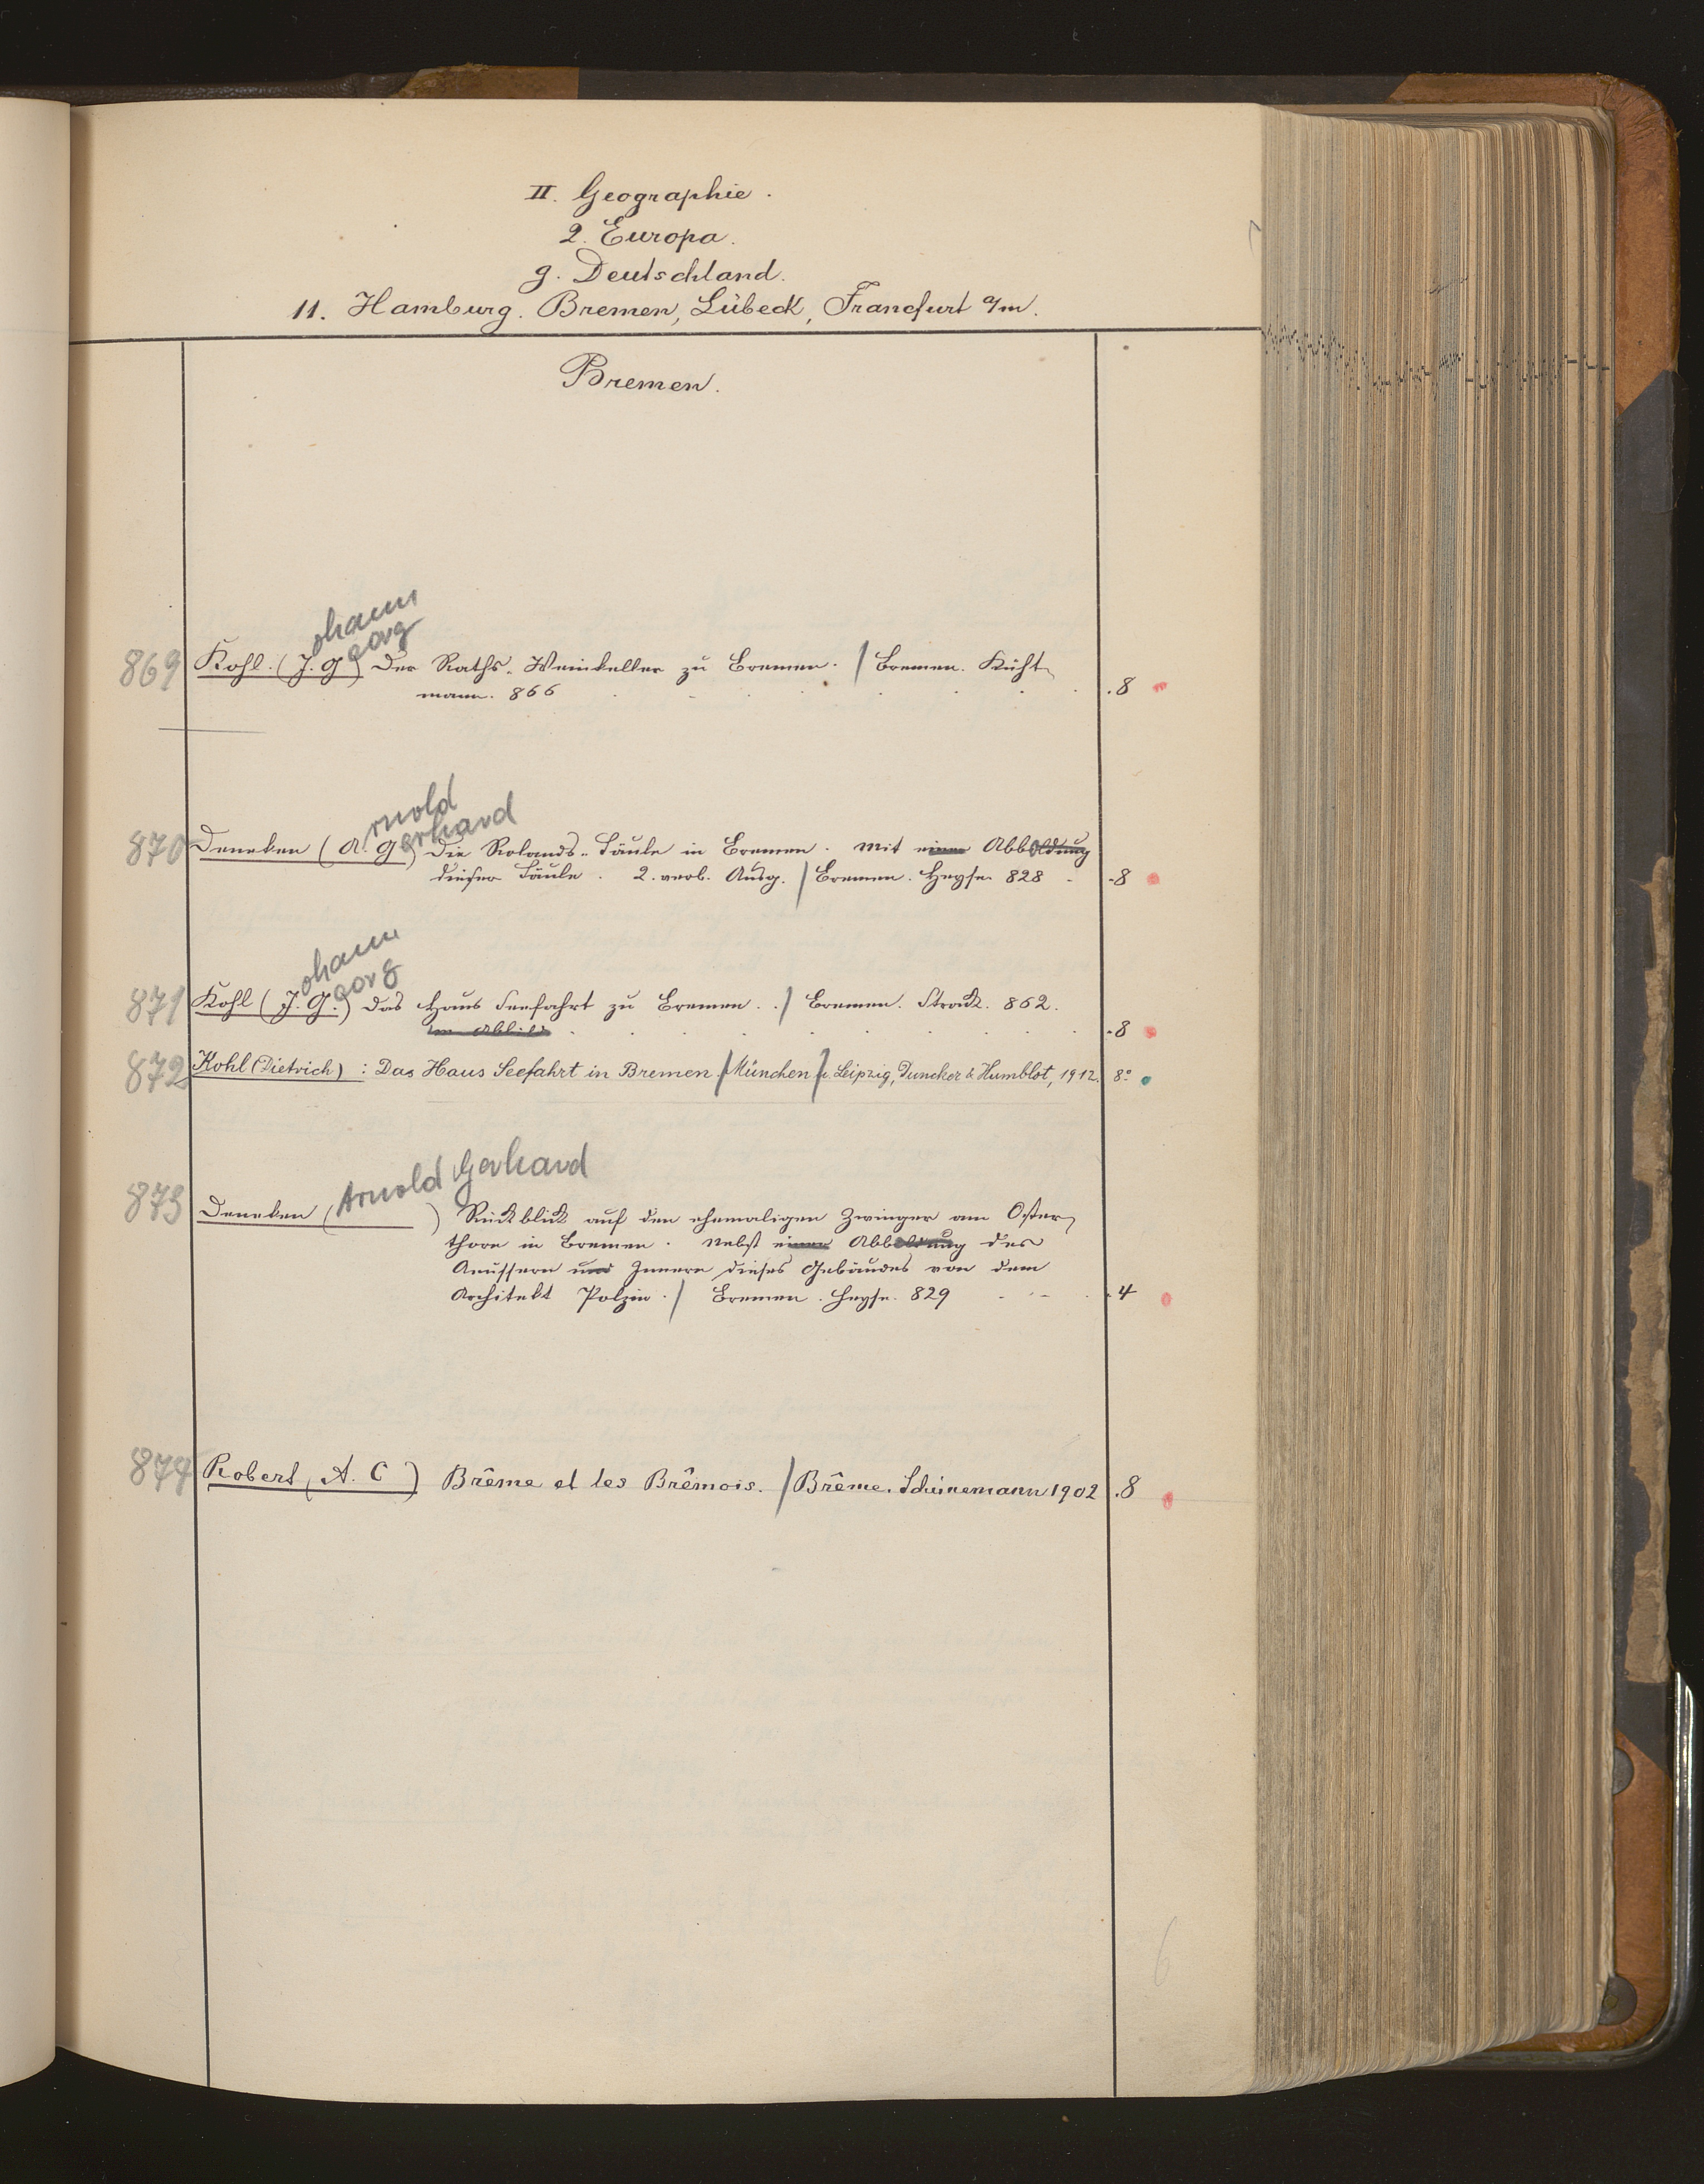 II. Geographie.
2. Europa.
g. Deutschland.
11. Hamburg. Bremen, Lübeck, Francfurt a/m.
Bremen.
ohann
eorg
869 Kohl. (J. G) Der Raths-Weinkeller zu Bremen. / Bremen. Küht-
mann. 866 .8
rnold
erhard
870 Deneken (A. G) Die Rolands-Säule in Bremen. Mit einer Abbildung
dieser Säule. 2. verb. Ausg. / Bremen. Heyse 828 .8
ohann
eorg
871 Kohl (J. G.) Das Haus Seefahrt zu Bremen. / Bremen. Strack. 862.
m Abbild .8
872 Kohl (Dietrich) : Das Haus Seefahrt in Bremen. / München u. Leipzig, Duncker & Humblot, 1912. 8°
Arnold Gerhard
873 Deneken ( ) Rückblick auf den ehemaligen Zwinger am Oster-
thore in Bremen. Nebst einer Abbildung des
Aeussern und Innern dieses Gebäudes von dem
Architekt Polzin. / Bremen. Heyse. 829 .4
874 Robert, (A. C) Brême et les Brêmois. / Brême. Scheinemann 1902 .8
6